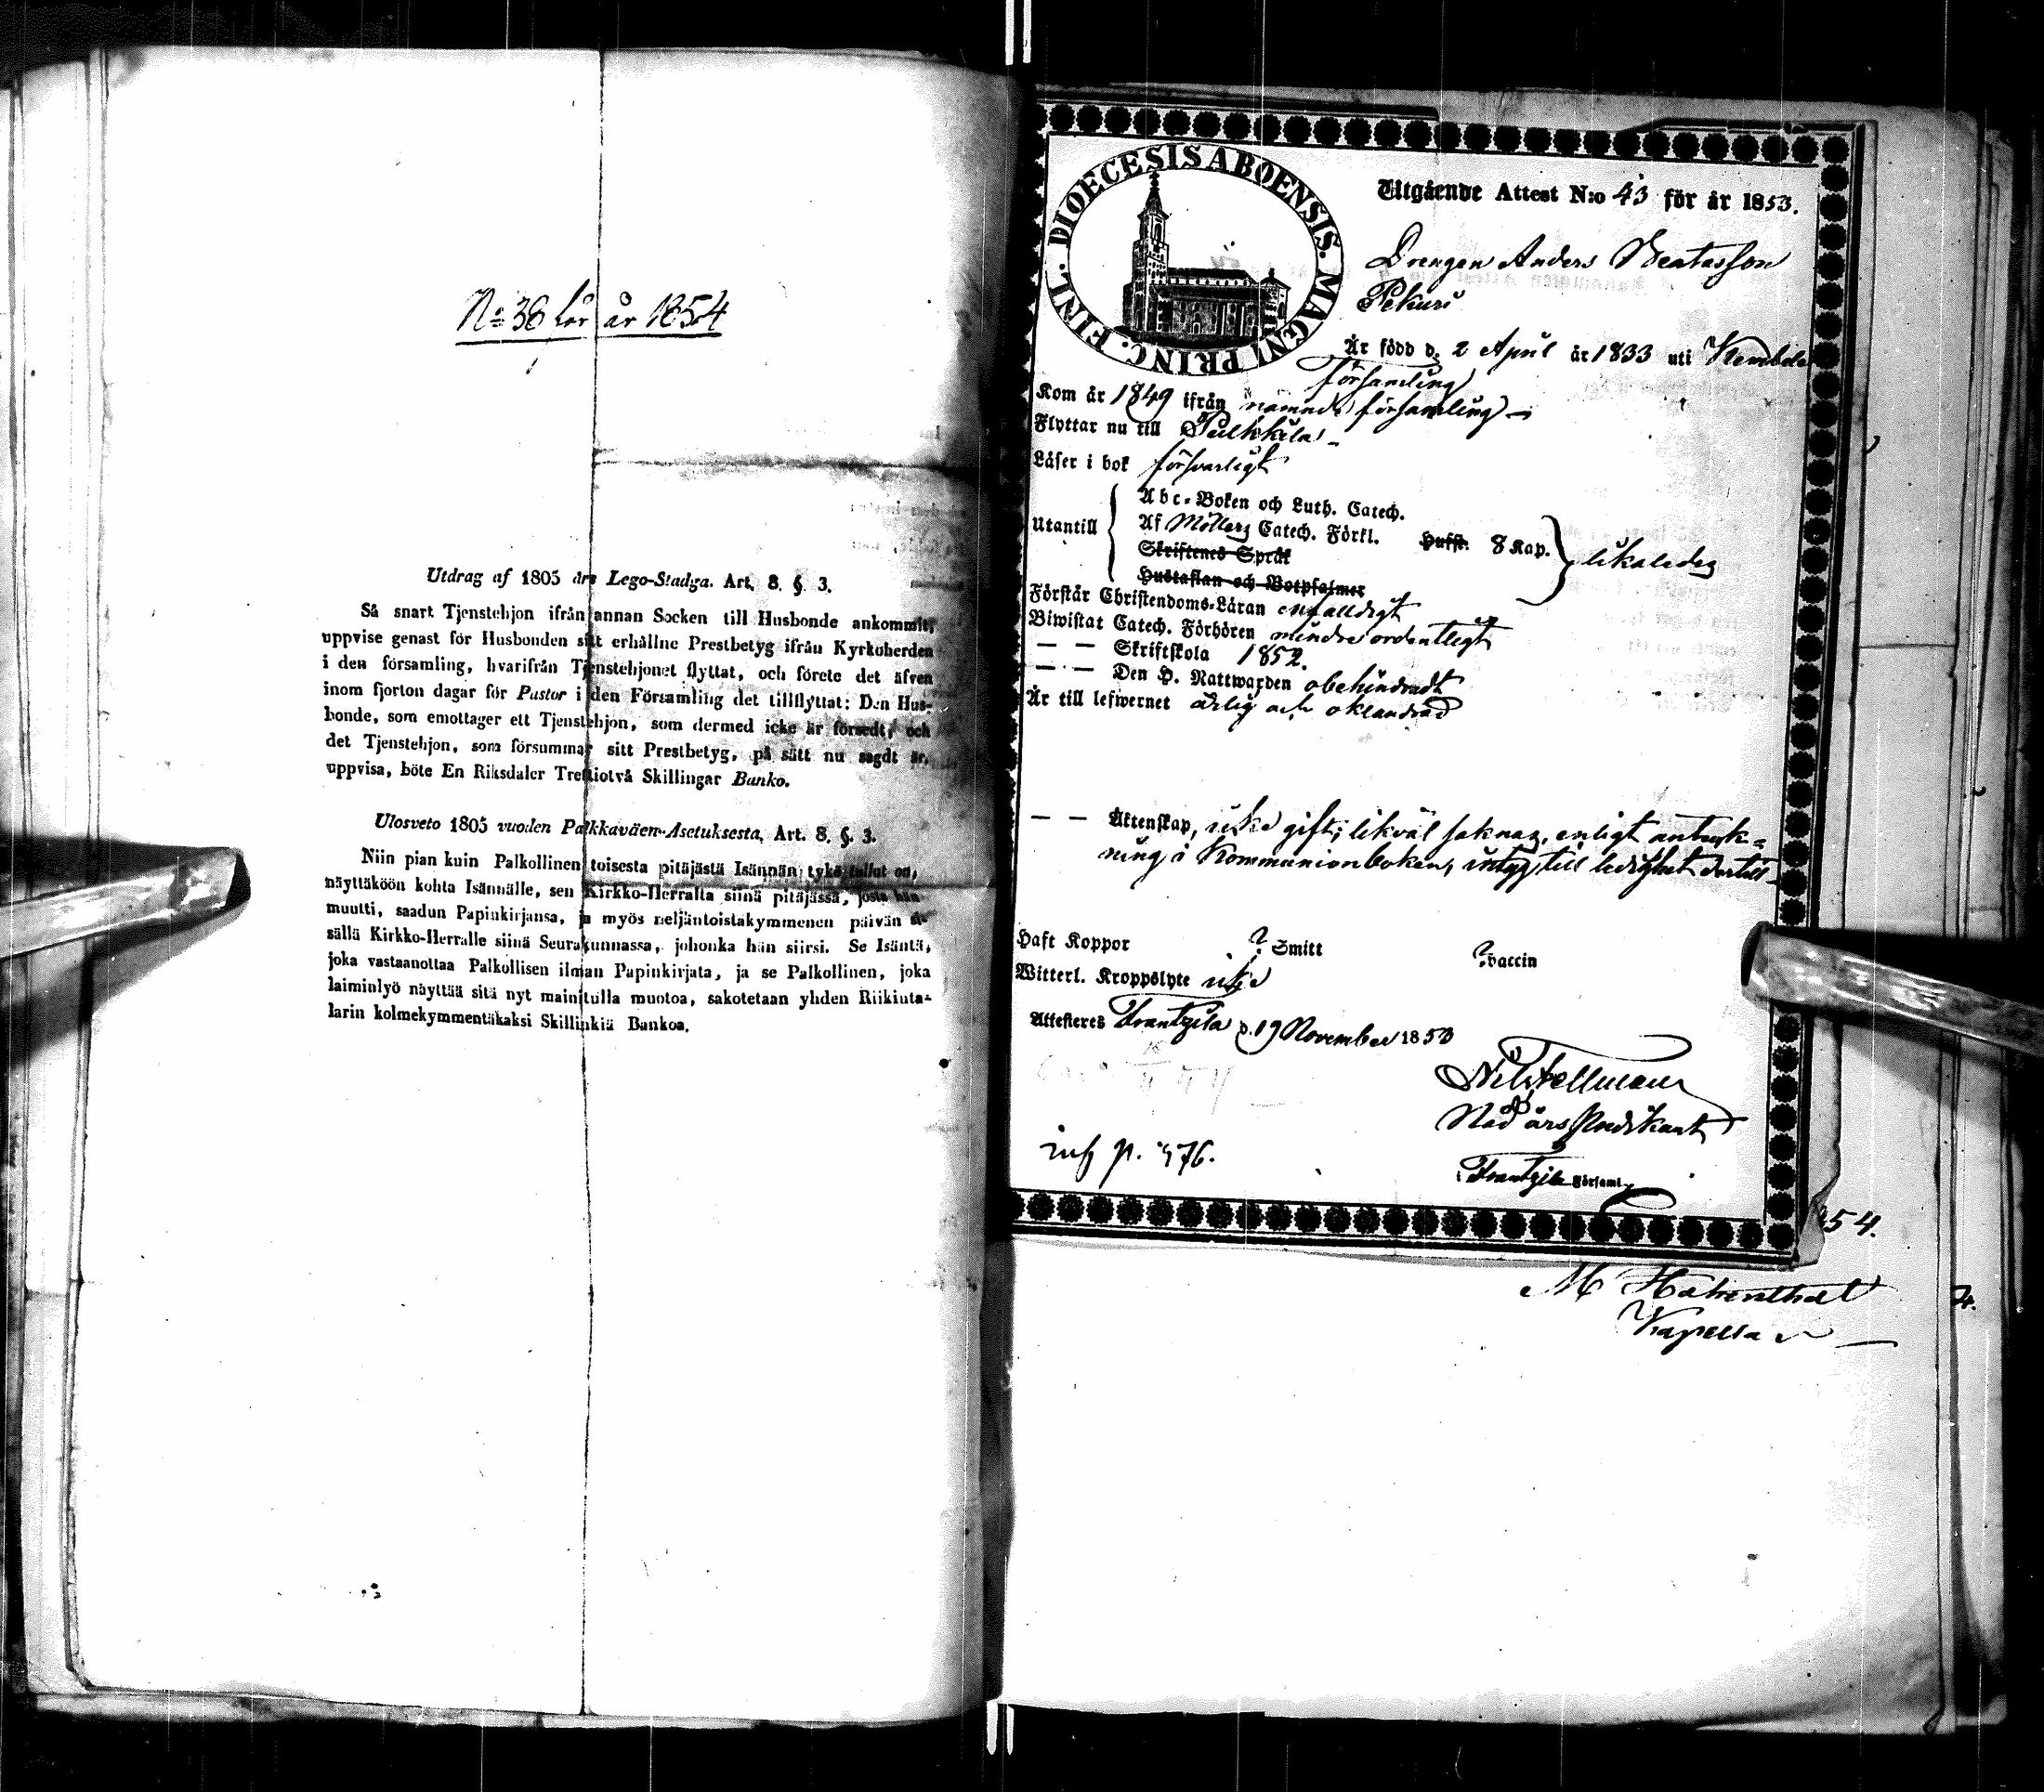 No 38 för år 1854
Utdrag af 1805 års Lego-Stadga. Art. 8. §. 3.
Så snart Tjenstehjon ifrån annan Socken till Husbonde ankommit,
uppvise genast för Husbonden sitt erhållne Prestbetyg ifrån Kyrkoherden
i den församling, hvarifrån Tjenstehjonet flyttat, och förete det äfven
inom fjorton dagar för Pastor i den Församling det tillflyttat: Den Hus-
bonde, som emottager ett Tjenstehjon, som dermed icke är försedt, och
det Tjenstehjon, som försummar sitt Prestbetyg, på sätt nu sagdt är,
uppvisa, böte En Riksdaler Trettiotvå Skillingar Banko.
Ulosveto 1805 vuoden Palkkaväen-Asetuksesta, Art. 8. §. 3.
Niin pian kuin Palkollinen toisesta pitäjästä Isännän tykö tullut on,
näyttäköön kohta Isännälle, sen Kirkko-Herralta siinä pitäjässä, josta hän
muutti, saadun Papinkirjansa, ja myös neljäntoistakymmenen päivän si-
sällä Kirkko-Herralle siinä Seurakunnassa, johonka hän siirsi. Se Isäntä,
joka vastaanottaa Palkollisen ilman Papinkirjata, ja se Palkollinen, joka
laiminlyö näyttää sitä nyt mainitulla muotoa, sakotetaan yhden Riikinta-
larin kolmekymmentäkaksi Skillinkiä Bankoa.
DIOECESIS ABOENSIS. MAGNI PRINC. FINL.
Utgående Attest N:o 43 för år 1853.
Drengen Anders Beatasson
Pekuri
Är född d. 2 April år 1833 uti Kembele
församling
Kom år 1849 ifrån nämnde församling
Flyttar nu till Pulkkila
Läser i bok försvarligt
Utantill
Abc-Boken och Luth. Catech.
Af Möllers Catech. Förkl. Hufst. 8 Kap.
likaledes
Skriftenes Språk
Hustaflan och Botpsalmer
Förstår Christendoms-Läran enfalldigt
Biwistat Catech. Förhören mindre ordentligt
— — Skriftskola 1852.
— — Den H. Nattwarden obehindradt
Är till lefwernet ärlig och oklandrad
— — Äktenskap, icke gift; likväl saknas, enligt anteck-
ning i Kommunionboken, intyg till ledighet dertill
Haft Koppor ? Smitt ? vaccin
Witterl. Kroppslyte icke
Attesteres Frantzila d. 19 November 1853
Fellman
Nådårs Predikant
Frantzila Församl.
p. 476.
54.
Kapellan